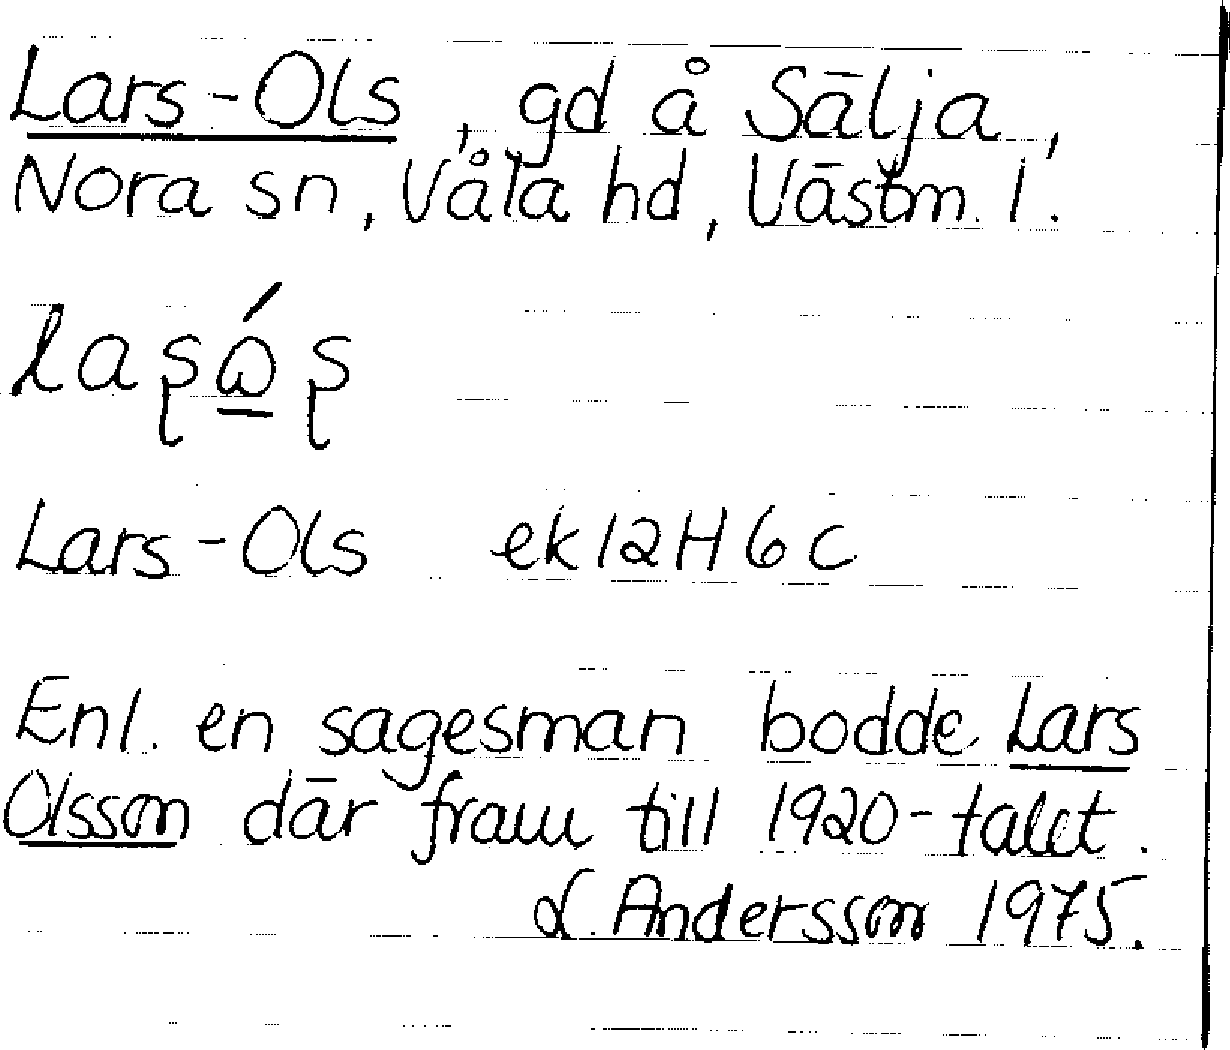 Lars-Ols, gd å Sälja,
Nora sn, Våla hd, Västm. l.
Lars-Ols ek 12H6c
Enl. en sagesman bodde Lars
Olsson där fram till 1920-talet.
L. Andersson 1975.